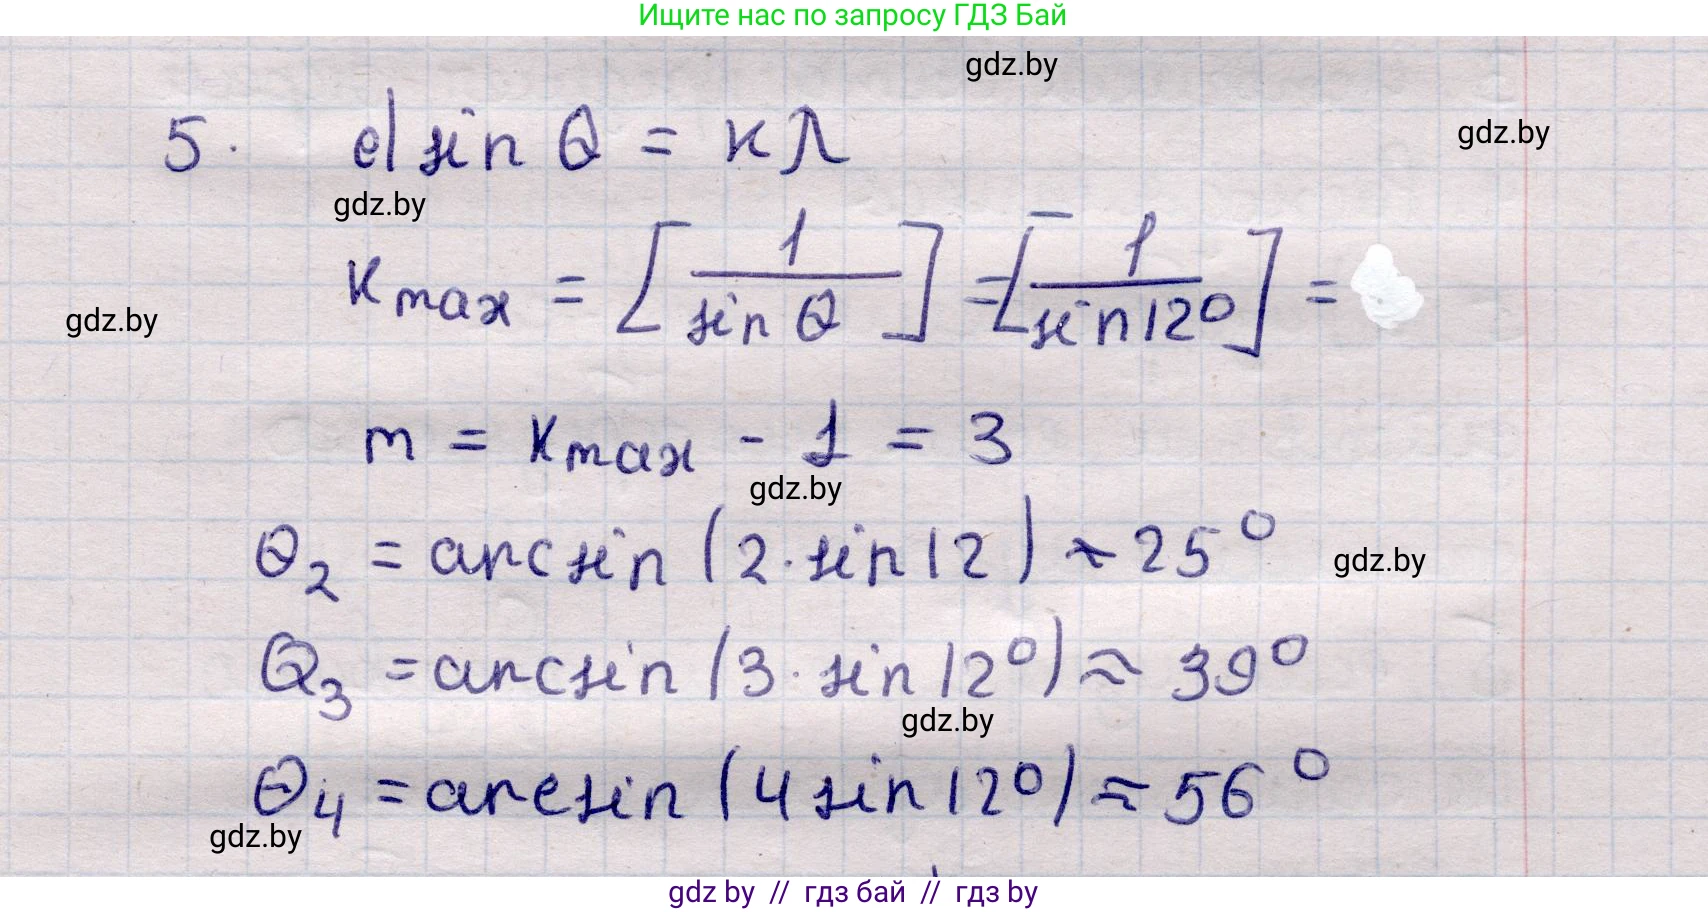 Ищите нас по запросу ГДЗ Бай
gdz.by
gdz.by
5. d sin θ = kλ
gdz.by
k max = [1 / sin θ] = [1 / sin 12°] =
gdz.by
m = k max - 1 = 3
gdz.by
θ₂ = arcsin (2 · sin 12) ≈ 25°
gdz.by
θ₃ = arcsin (3 · sin 12°) ≈ 39°
gdz.by
θ₄ = arcsin (4 sin 12°) ≈ 56°
gdz.by
gdz by // гдз бай // гдз by